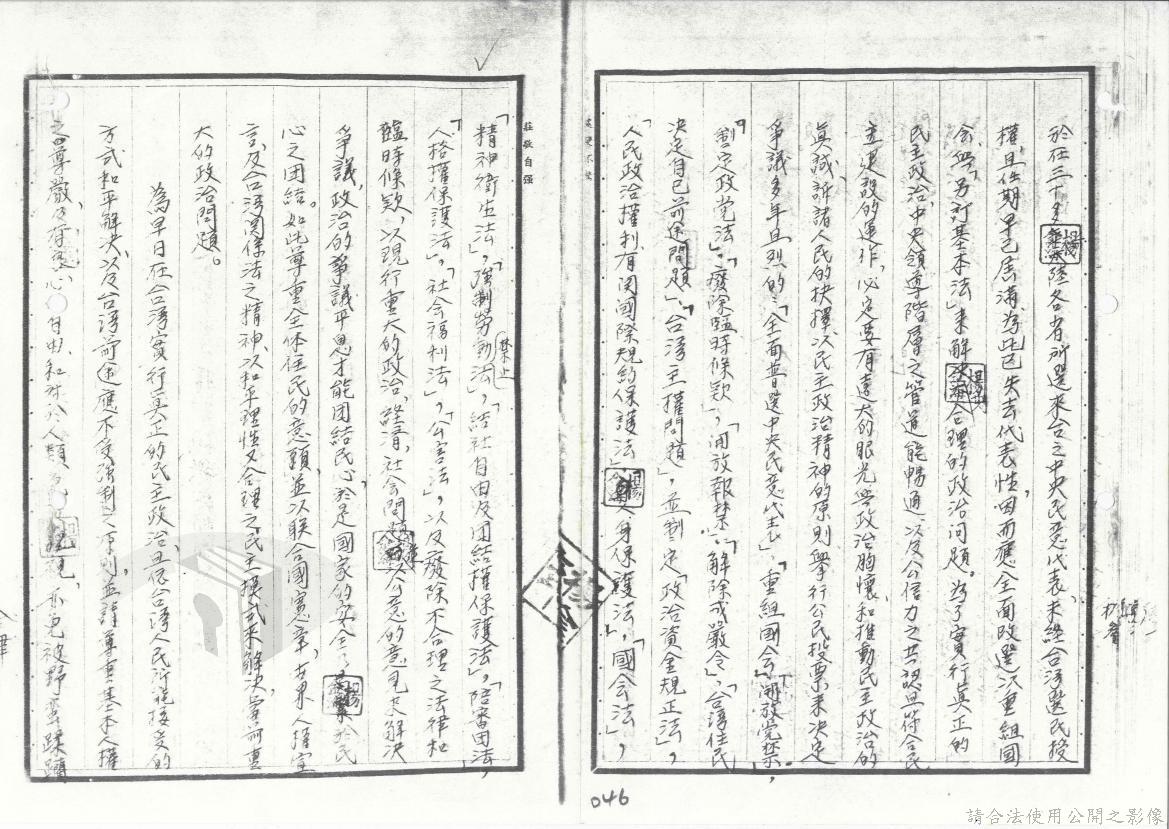 於在三十多年來大陸各省所選來台之中央民意代表、未經台灣選民授
權、且任期早已屆滿、為此已失去代表性、因而應全面改選以重組國
會與「另訂基本法」來解決合理的政治问題。為了實行真正的
民主政治、中央領導階層之管道能暢通以及公信力之共認且符合民
主建設的運作、必定要有遠大的眼光與政治胸懷、和推動民主政治的
真誠、訴諸人民的抉擇、以民主政治精神的原則舉行公民投票、來決定
爭議多年且烈的:「全面普選中央民意代表」,「重組國會」「開放党禁」,
「制定政党法」,「廢除臨時條欵」,「開放報禁」,「解除戒嚴令」,「台灣住民
決定自己前途問題」,「台湾主權問題」,並制定「政治資金規正法」,
「人民政治權利有関國際規約保護法」「人身保護法」,「國会法」,
「精神衛生法」,「禁止強制勞動法」,「結社自由及团結權保護法」,「陪審团法」,
「人格權保護法」,「社会福利法」,「公害法」,以及廢除不合理之法律和
臨時條欵、以現行重大的政治、經濟、社会問題以公意的意見來解決
爭議、政治的爭議平息才能团結民心、於是國家的安全、繫於民
心之团結。如此尊重全体住民的意願、並以联合國憲章、世界人權宣
言、及台湾関係法之精神、以和平理性又合理之民主模式來解決當前重
大的政治問題。
為早日在台灣實行真正的民主政治、且依台灣人民所能接受的
方式和平解決、以及台湾前途應不受強制之原則、並請尊重基本人權
之尊嚴、心自由、人類、免被野蛮蹂躪
莊敬自强
046
請合法使用公開之影像